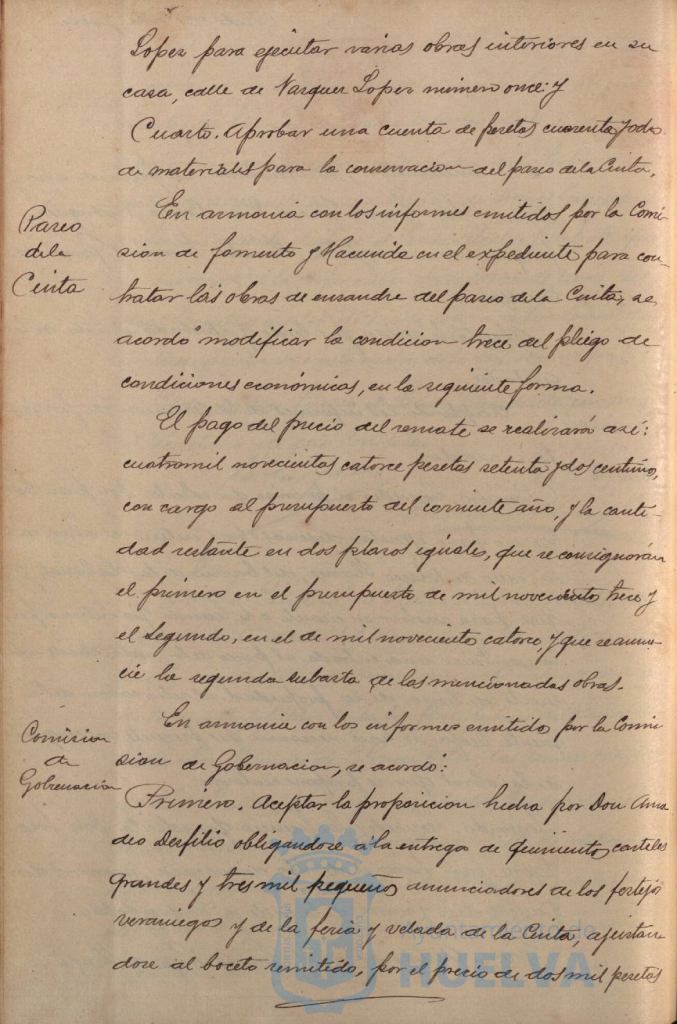 Lopez para ejecutar varias obras interiores en su
casa, calle de Vazquez Lopez número once: y
Cuarto. Aprobar una cuenta de pesetas cuarenta y ocho
de materiales para la conservacion del paseo de la Cinta.
Paseo
de la
Cinta
En armonía con los informes emitidos por la Comi-
sion de fomento y Hacienda en el expediente para con-
tratar las obras de ensanche del paseo de la Cinta, se
acordó modificar la condicion trece del pliego de
condiciones económicas, en la siguiente forma.
El pago del precio del remate se realizará así:
cuatromil novecientas catorce pesetas setenta y dos centimos,
con cargo al presupuesto del corriente año, y la canti-
dad restante en dos plazos iguales, que se consignarán
el primero en el presupuesto de mil novecientos trece y
el segundo, en el de mil novecientos catorce, y que se anun-
cie la segunda subasta de las mencionadas obras.
Comision
de
Gobernación
En armonia con los informes emitidos por la Comi-
sion de Gobernacion, se acordó:
Primero. Aceptar la proposicion hecha por Don Ama-
deo Desfilio obligandose á la entrega de quinientos carteles
grandes y tres mil pequeños anunciadores de los festejos
veraniegos y de la feria y velada de la Cinta, ajustan-
dose al boceto remitido, por el precio de dos mil pesetas
HUELVA